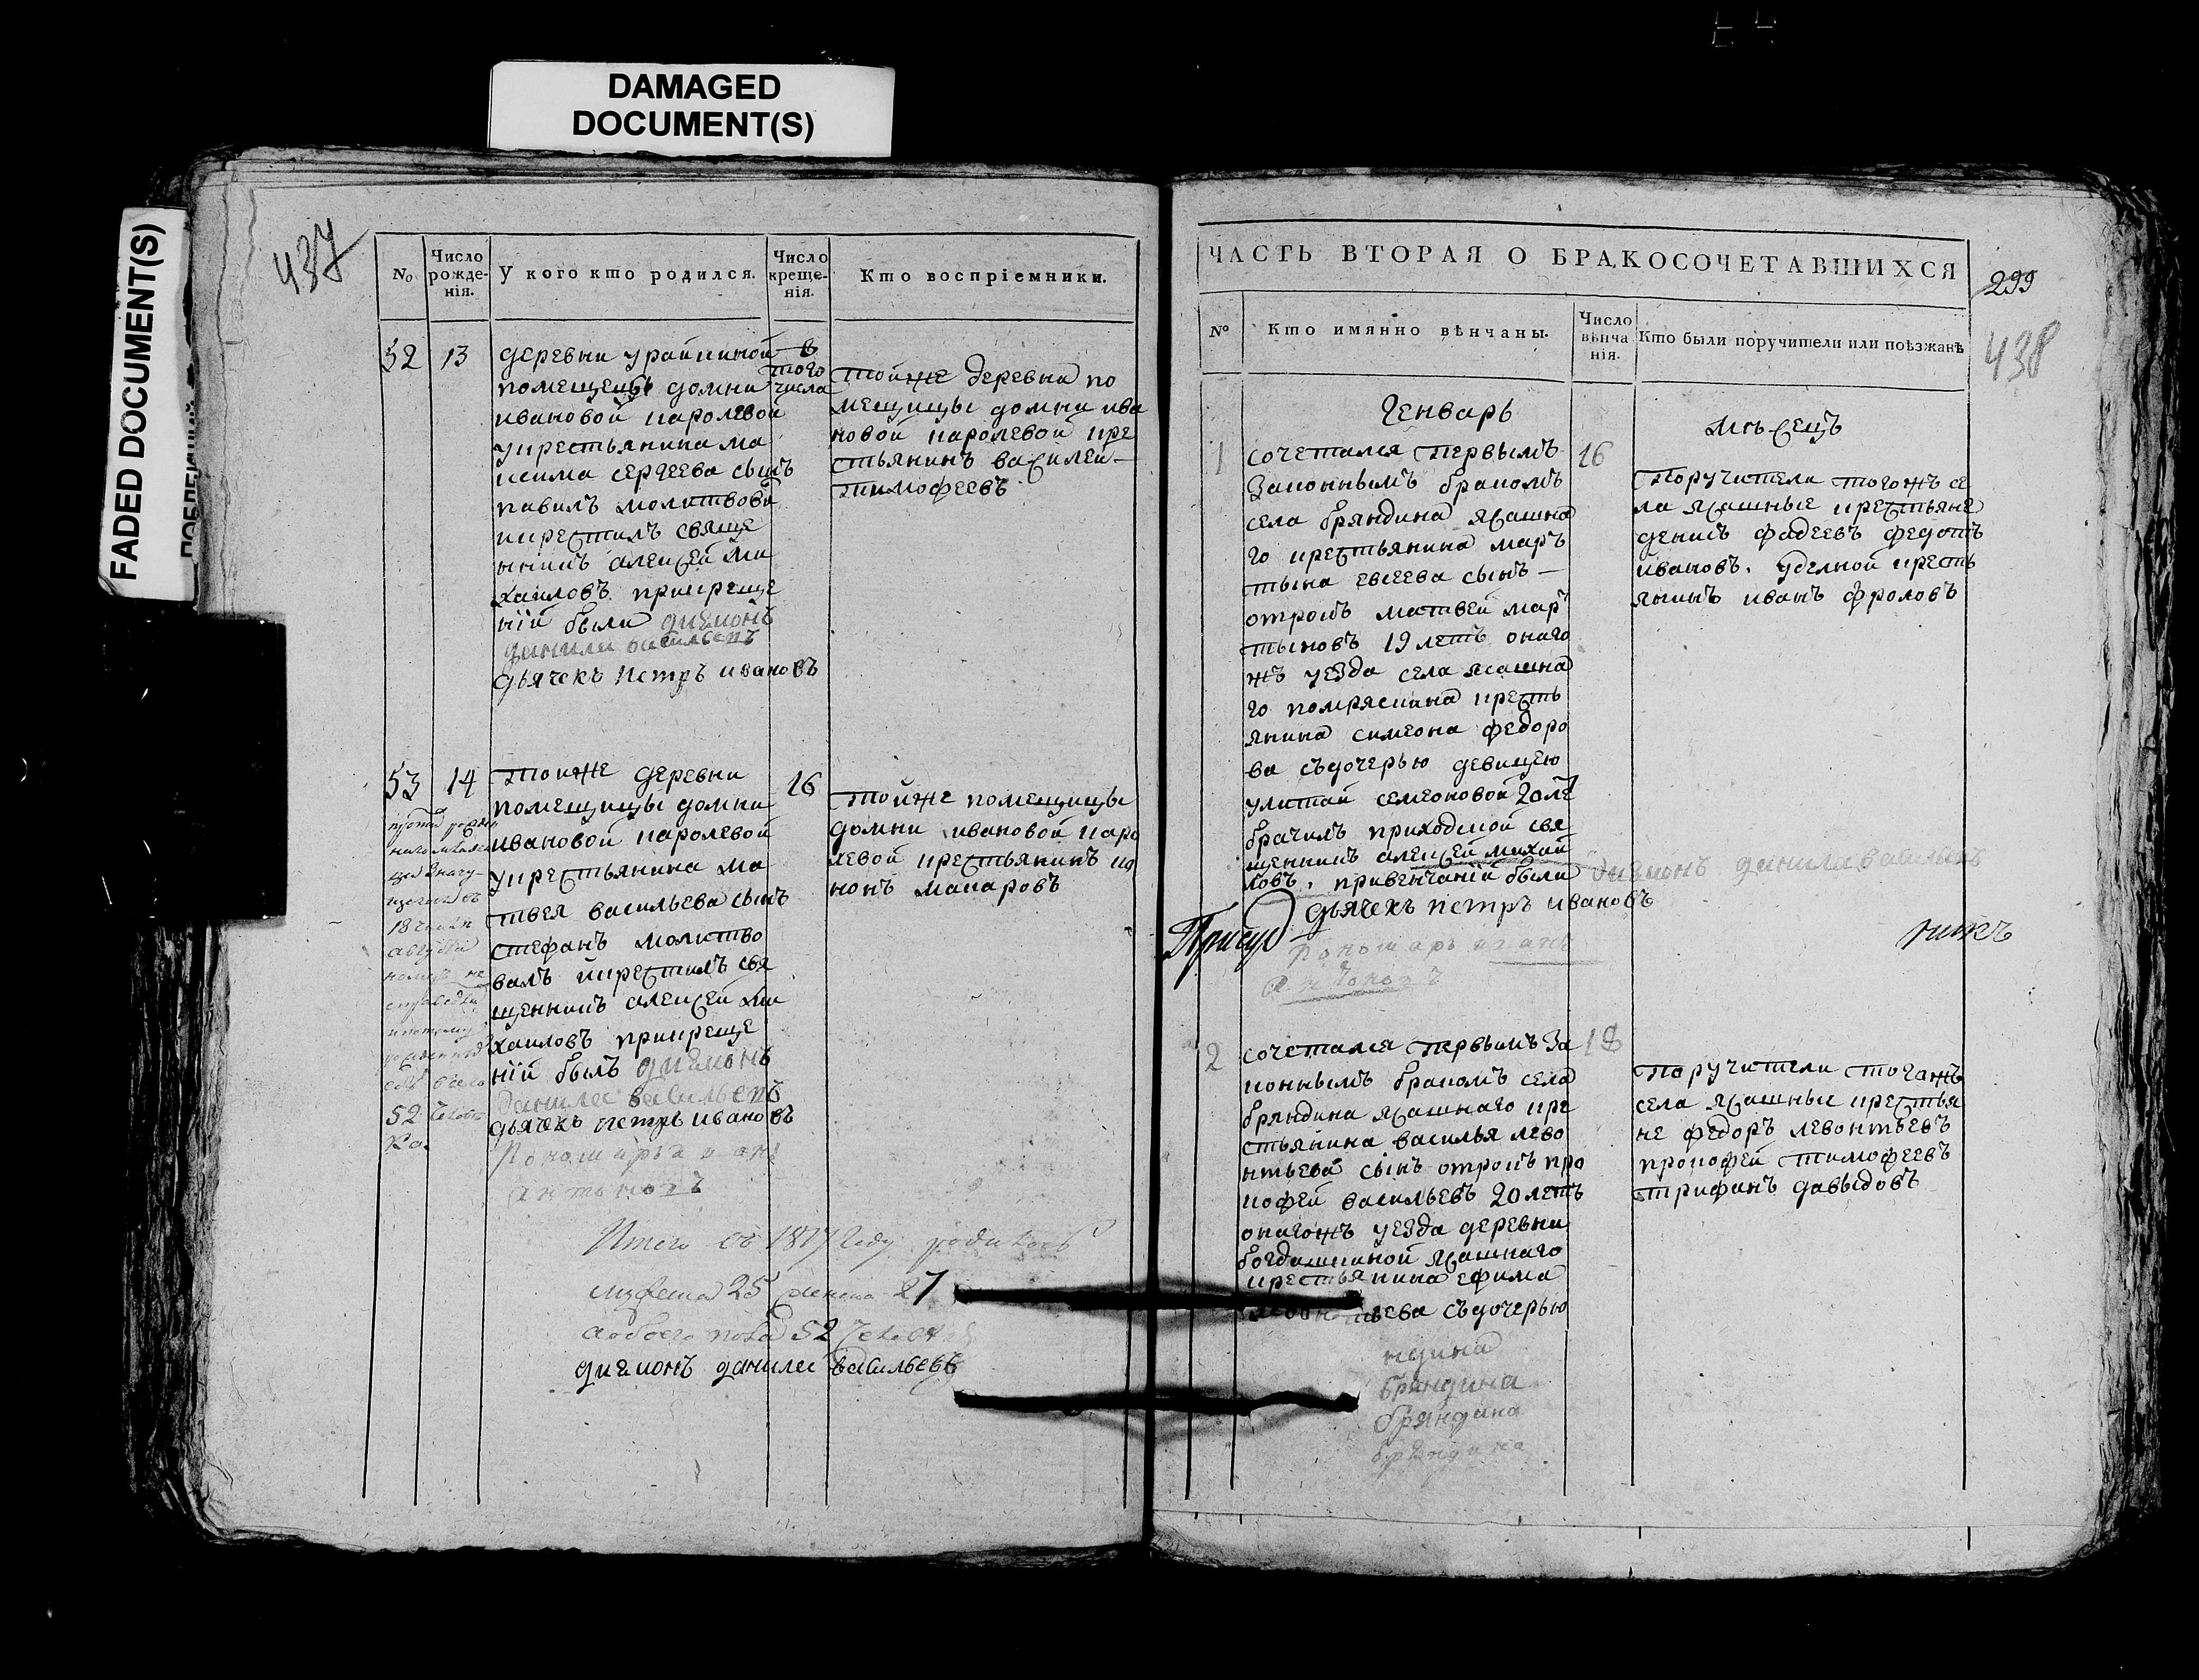 DAMAGED
DOCUMENT(S)
FADED DOCUMENT(S)
437
No
Число рожденія.
У кого кто родился.
Число крещенія.
Кто воспріемники.
52
13
деревни урайкиной
помещецы домни
ивановой королевой
укрестьянина ма
ксима сергеева сынъ
павилъ молитвовалъ
икрестилъ свяще
нникъ алексей ми
хаиловъ прикреще
нiй были дияконъ
данила васильевъ
дьячекъ петръ ивановъ
в
того
числа
тойже деревни по
мещицы домни ива
новой каролевой кре
стьянинъ василей
тимофеевъ
53
14
тоиже деревни
помещицы домни
ивановой королевой
укрестьянина ма
твея васильева сынъ
стефанъ молитво
валъ икрестилъ свя
щенникъ алексей ми
хаиловъ прикреще
нiй былъ дияконъ
данила васильевъ
дьячекъ петръ ивановъ
Пономарь иванъ
антоновъ
16
тойже помещицы
домни ивановой каро
левой крестьянинъ ко
нонъ макаровъ
18 числа
августа
52
Итого въ 1817 году родилось
мужеска 25 женска 27
а обоего пола 52 человека
дияконъ данила васильевъ
ЧАСТЬ ВТОРАЯ О БРАКОСОЧЕТАВШИХСЯ
299
438
No
Кто имянно вѣнчаны.
Число вѣнча нія.
Кто были поручители или поѣзжанѣ
Генварь
мѣсецъ
1
сочетался первымъ
законнымъ бракомъ
села бряндина ясашна
го крестьянина мар
тына евсеева сынъ
отрокъ матвей мар
тыновъ 19 летъ онаго
жъ уезда села ясашна
го помряскина кресть
янина симеона федоро
ва съдочерью девицею
улитай семеоновой 20 ле
брачилъ приходской свя
щенникъ алексей михай
ловъ, привенчанiй были дияконъ данила васильевъ
дьячекъ петръ ивановъ
Пономарь иванъ
антоновъ
16
Поручители тогожъ се
ла ясашные крестьяне
денисъ фадеевъ федотъ
ивановъ. уделной кресть
янинъ иванъ фроловъ
2
сочетался первымъ за
коннымъ бракомъ села
бряндина ясашнаго кре
стьянина василья лево
нтьева сынъ отрокъ про
кофей васильевъ 20 летъ
онагожъ уезда деревни
богдашкиной ясашнаго
крестьянина ефима
съдочерью
18
Поручители тогожъ
села ясашные крестья
не федоръ левонтьевъ
прокофей тимофеевъ
трифанъ давыдовъ
ндина
бряндина
бряндина
бряндина